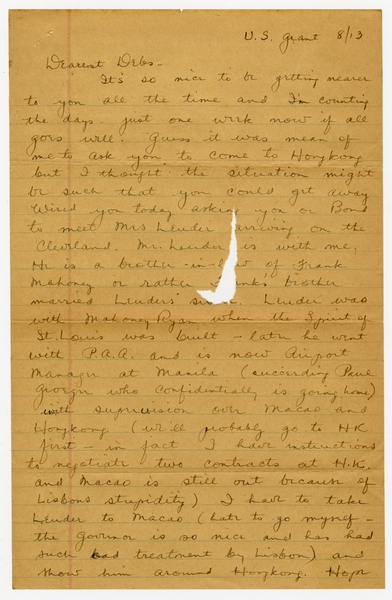 U.S. Grant 8/13
Dearest Debs-
It's so nice to be getting nearer
to you all the time and I'm counting
the days - just one week now if all
goes well. Guess it was mean of
me to ask you to come to Hongkong
but I thought the situation might
be such that you could get away
Wired you today asking you or Bond
to meet Mrs Leuder arriving on the
Cleveland. Mr. Leuder is with me;
He is a brother-in-law of Frank
Mahoney or rather Franks' brother
married Leuders' sister. Leuder was
with Mahoney Ryan when the Spirit of
St. Louis was built - later he went
with P.A.A. and is now Airport
Manager at Manila (succeeding Paul
George who confidentially is going home)
with supervision over Macao and
Hongkong (we'll probably go to H.K
first - in fact I have instructions
to negotiate two contracts at H.K.
and Macao is still out because of
Lisbons stupidity) I have to take
Leuder to Macao (hate to go myself -
the governor is so nice and has had
such bad treatment by Lisbon) and
show him around Hongkong. Hope